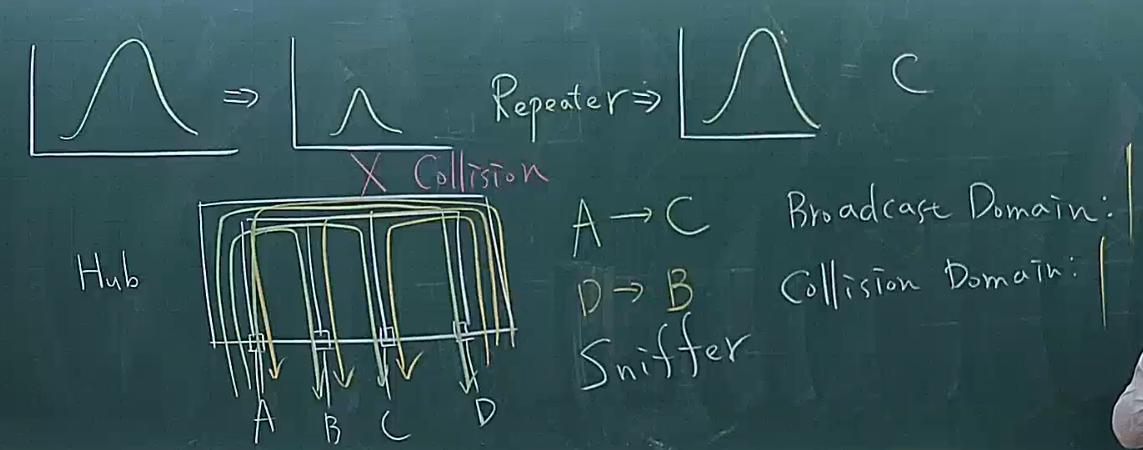 Repeater ⇒
C
X Collision
Hub
A → C
D → B
Sniffer
Broadcast Domain: 1
Collision Domain: 1
A B C D